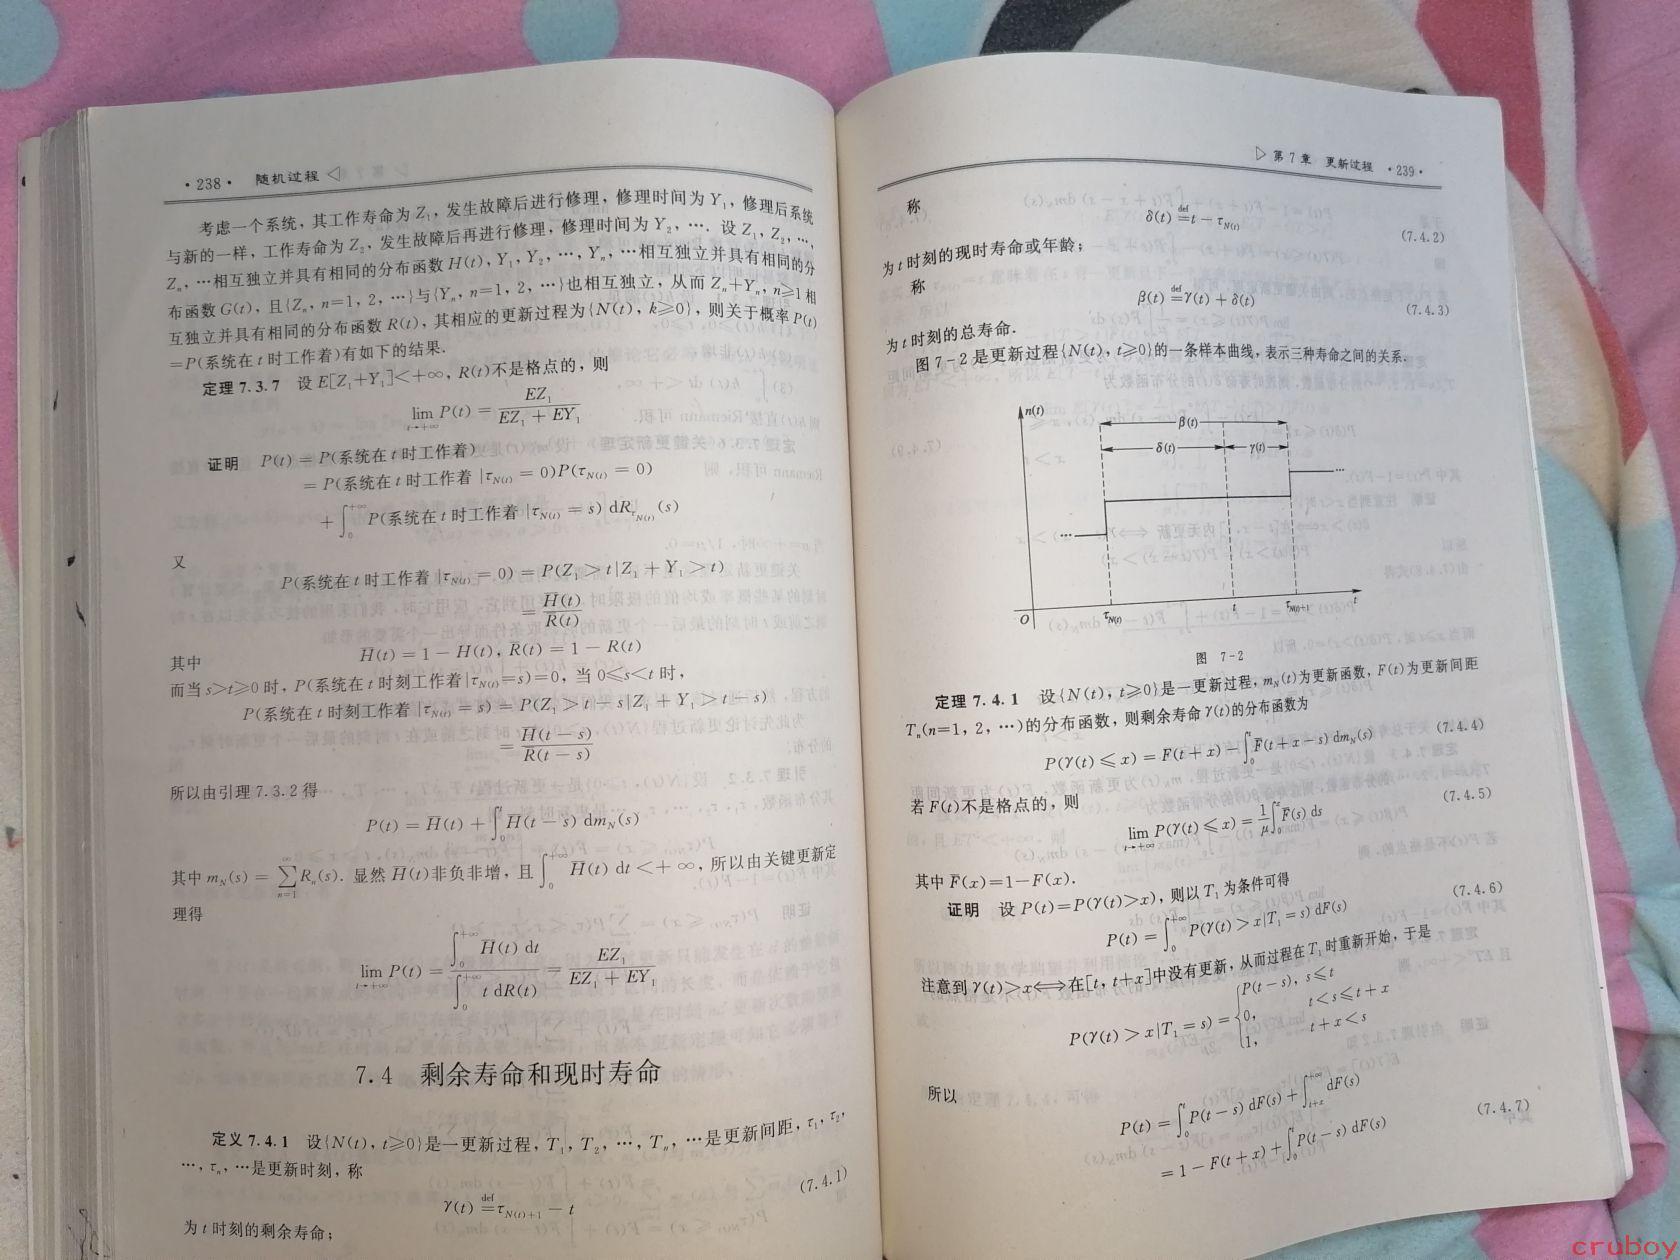 ·238· 随机过程 ◁
考虑一个系统，其工作寿命为 Z₁，发生故障后进行修理，修理时间为 Y₁，修理后系统
与新的一样，工作寿命为 Z₂，发生故障后再进行修理，修理时间为 Y₂，…. 设 Z₁, Z₂, …,
Zₙ, …相互独立并具有相同的分布函数 H(t), Y₁, Y₂, …, Yₙ, …相互独立并具有相同的分
布函数 G(t)，且{Zₙ, n=1, 2, …}与{Yₙ, n=1, 2, …}也相互独立，从而 Zₙ+Yₙ, n≥1 相
互独立并具有相同的分布函数 R(t)，其相应的更新过程为{N(t), k≥0}，则关于概率 P(t)
=P(系统在 t 时工作着)有如下的结果.
定理 7.3.7 设 E[Z₁+Y₁]<+∞, R(t)不是格点的，则
lim_{t→+∞} P(t) = EZ₁/(EZ₁ + EY₁)
证明 P(t) = P(系统在 t 时工作着)
= P(系统在 t 时工作着 |τ_{N(t)} = 0)P(τ_{N(t)} = 0)
+ ∫₀^{+∞} P(系统在 t 时工作着 |τ_{N(t)} = s) dR_{τ_{N(t)}}(s)
又
P(系统在 t 时工作着 |τ_{N(t)} = 0) = P(Z₁ > t|Z₁ + Y₁ > t)
= H̅(t)/R̅(t)
其中
H̅(t) = 1 − H(t), R̅(t) = 1 − R(t)
而当 s>t≥0 时，P(系统在 t 时刻工作着|τ_{N(t)}=s)=0，当 0≤s<t 时，
P(系统在 t 时刻工作着 |τ_{N(t)} = s) = P(Z₁ > t − s|Z₁ + Y₁ > t − s)
= H̅(t − s)/R̅(t − s)
所以由引理 7.3.2 得
P(t) = H̅(t) + ∫₀^t H̅(t − s) dm_N(s)
其中 m_N(s) = ∑_{n=1}^∞ Rₙ(s). 显然 H̅(t)非负非增，且 ∫₀^{+∞} H̅(t) dt < + ∞，所以由关键更新定
理得
lim_{t→+∞} P(t) = ∫₀^{+∞} H̅(t) dt / ∫₀^{+∞} t dR(t) = EZ₁/(EZ₁ + EY₁)
7.4 剩余寿命和现时寿命
定义 7.4.1 设{N(t), t≥0}是一更新过程，T₁, T₂, …, Tₙ, …是更新间距，τ₁, τ₂,
…, τₙ, …是更新时刻，称
γ(t) ≝ τ_{N(t)+1} − t (7.4.1)
为 t 时刻的剩余寿命；
▷ 第 7 章 更新过程 ·239·
称
δ(t) ≝ t − τ_{N(t)} (7.4.2)
为 t 时刻的现时寿命或年龄；
称
β(t) ≝ γ(t) + δ(t) (7.4.3)
为 t 时刻的总寿命.
图 7-2 是更新过程{N(t), t≥0}的一条样本曲线，表示三种寿命之间的关系.
n(t)
β(t)
δ(t) γ(t)
… …
O τ_{N(t)} t τ_{N(t)+1} t
图 7-2
定理 7.4.1 设{N(t), t≥0}是一更新过程，m_N(t)为更新函数，F(t)为更新间距
Tₙ(n=1, 2, …)的分布函数，则剩余寿命 γ(t)的分布函数为
P(γ(t) ≤ x) = F(t + x) − ∫₀^t F̅(t + x − s) dm_N(s) (7.4.4)
若 F(t)不是格点的，则
lim_{t→+∞} P(γ(t) ≤ x) = 1/μ ∫₀^x F̅(s) ds (7.4.5)
其中 F̅(x)=1−F(x).
证明 设 P(t)=P(γ(t)>x)，则以 T₁ 为条件可得
P(t) = ∫₀^{+∞} P(γ(t) > x|T₁ = s) dF(s) (7.4.6)
注意到 γ(t)>x⟺在[t, t+x]中没有更新，从而过程在 T₁ 时重新开始，于是
P(γ(t) > x|T₁ = s) = { P(t − s), s ≤ t
0, t < s ≤ t + x
1, t + x < s
所以
P(t) = ∫₀^t P(t − s) dF(s) + ∫_{t+x}^{+∞} dF(s)
= 1 − F(t + x) + ∫₀^t P(t − s) dF(s) (7.4.7)
cruboy